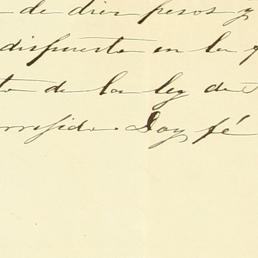 de diez pesos y
dispuesto en la
to de la ley de
Doy fé